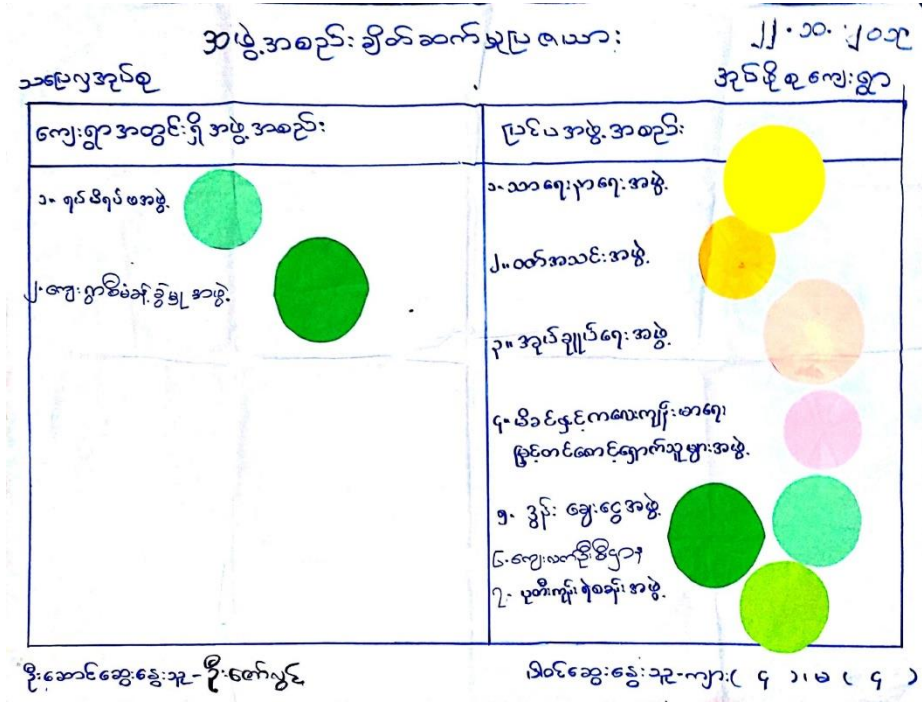 အဖွဲ့အစည်းချိတ်ဆက်မှုပြဇယား
၂၂.၁၀.၂၀၁၉
သပြေလှအုပ်စု
အုပ်ဖိုစုကျေးရွာ
ကျေးရွာအတွင်းရှိအဖွဲ့အစည်း
ပြင်ပအဖွဲ့အစည်း
၁။ ရပ်မိရပ်ဖအဖွဲ့
၂။ ကျေးရွာစီမံခန့်ခွဲမှုအဖွဲ့
၁။ သာရေးနာရေးအဖွဲ့
၂။ ဝတ်အသင်းအဖွဲ့
၃။ အုပ်ချုပ်ရေးအဖွဲ့
၄။ မိခင်နှင့်ကလေးကျန်းမာရေး
မြှင့်တင်စောင့်ရှောက်သူများအဖွဲ့
၅. ဒွန်းချေးငွေအဖွဲ့
၆. ကျေးလက်ဦးစီးဌာန
၇. ပုတီးကုန်းရဲစခန်းအဖွဲ့
ဦးဆောင်ဆွေးနွေးသူ-ဦးဇော်လွင်
ပါဝင်ဆွေးနွေးသူ-ကျား( ၄ ) ၊ မ ( ၄ )